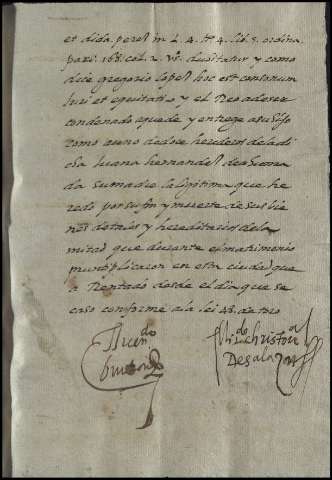 et dida per el m L. 4. tto 4. lib. 5. ordina.
pari. 168. col. 2. vs. devitatur y como
dice gregorio lopes hoc est consonum
iuri et equitati y el Reo a de ser
condenado a que de y entregue a su hijo
como a uno de dose herederos de la di
cha Juana hernandes
da su madre la legitima que he
redo por su fin y muerte de sus bie
nes dotales y hereditarios de la
mitad que durante el matrimonio
multiplicaron en esta ciudad que
a Rentado desde el dia que se
caso conforme a la lei 48. de toro
licen.do
El li.do Christoual
De salazar